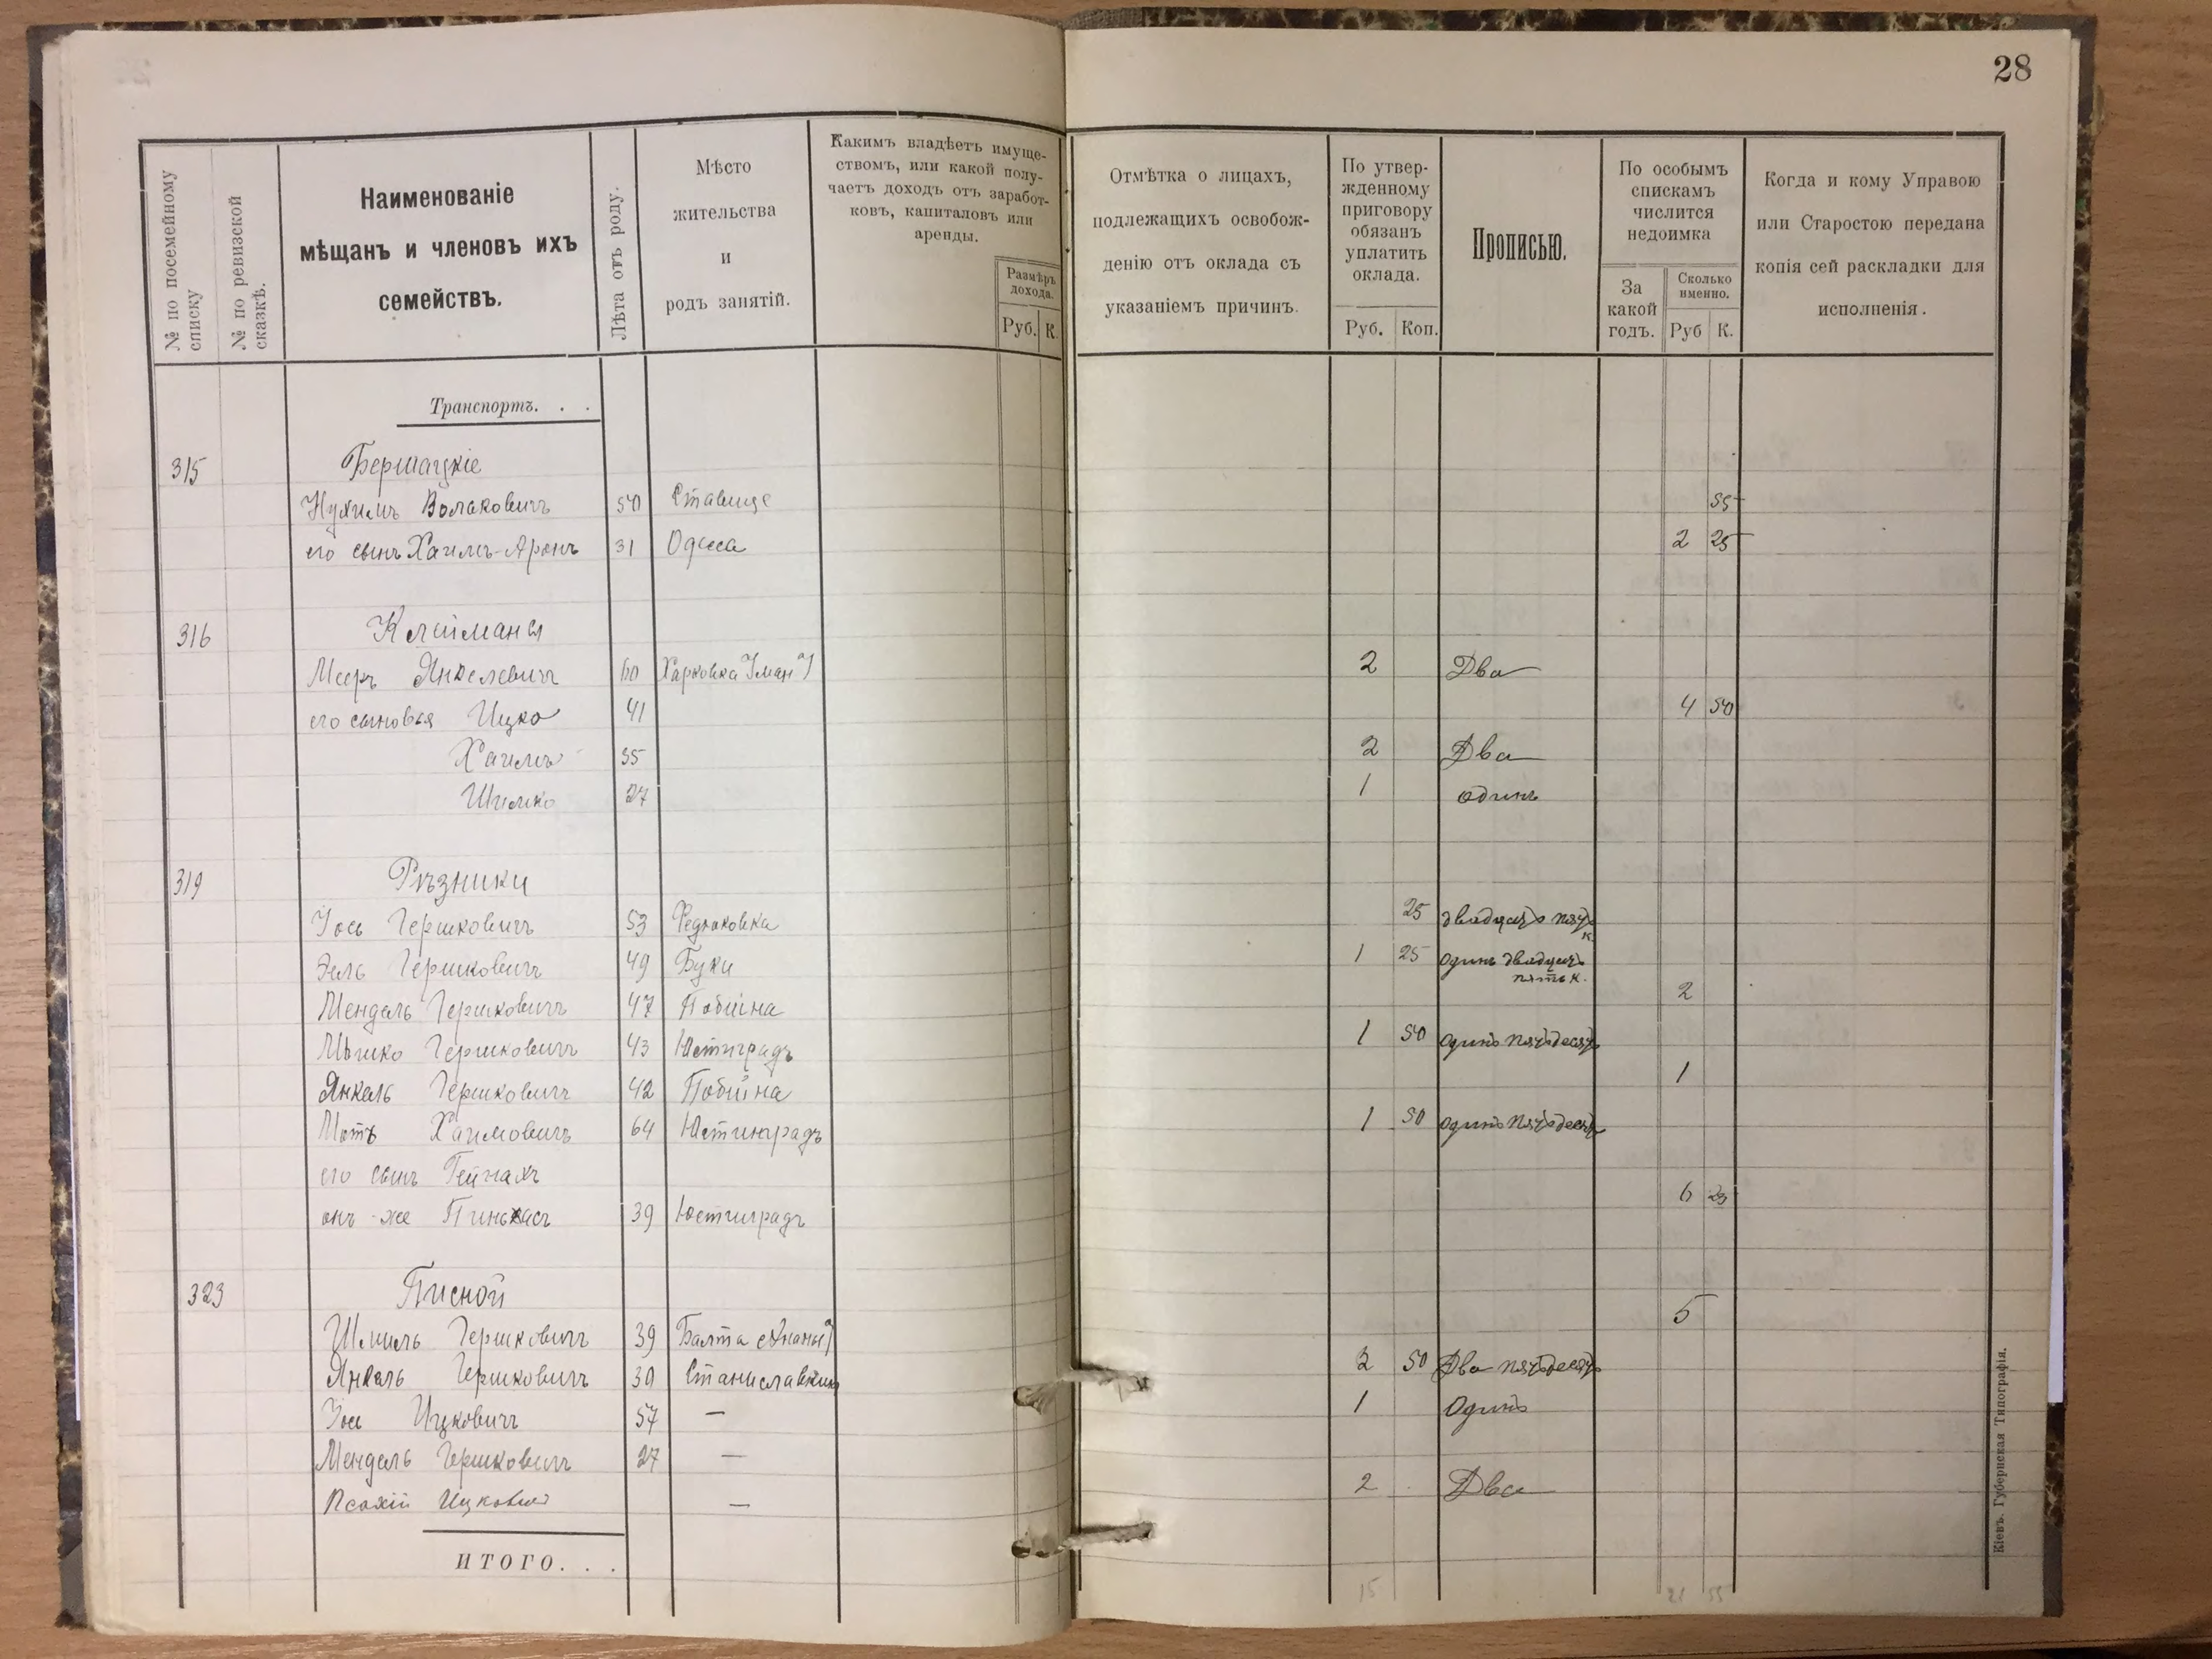 28
№ по посемейному списку
№ по ревизской сказкѣ.
Наименованіе
мѣщанъ и членовъ ихъ
семействъ.
Лѣта отъ роду.
Мѣсто
жительства
и
родъ занятій.
Какимъ владѣетъ имуще-
ствомъ, или какой полу-
чаетъ доходъ отъ заработ-
ковъ, капиталовъ или
аренды.
Размѣръ
дохода.
Руб. К.
Отмѣтка о лицахъ,
подлежащихъ освобож-
денію отъ оклада съ
указаніемъ причинъ.
По утвер-
жденному
приговору
обязанъ
уплатить
оклада.
Руб. Коп.
Прописью.
По особымъ
спискамъ
числится
недоимка
За
какой
годъ.
Сколько
именно.
Руб К.
Когда и кому Управою
или Старостою передана
копія сей раскладки для
исполненія.
Транспортъ. . .
315 Бершацкіе
Нухимъ Волковичъ 50 Ставище 55
его сынъ Хаимъ-Аронъ 31 Одесса 2 25
316 Клейманы
Мееръ Янкелевичъ 60 Харковка 2 Два
его сыновья Ицко 41 4 50
Хаимъ 35 2 Два
Шимко 27 1 одинъ
319 Рѣзники
Іось Гершковичъ 53 Федюковка 25 двадцать пять к.
Эль Гершковичъ 49 Буки 1 25 одинъ двадцать
пять к.
Мендель Гершковичъ 47 Побійна 2
Мошко Гершковичъ 43 Юстиградъ 1 50 одинъ пятьдесятъ
Янкель Гершковичъ 42 Побійна 1
Мотъ Хаимовичъ 64 Юстинградъ 1 50 одинъ пятьдесятъ
его сынъ Гейнахъ
онъ-же Пинхасъ 39 Юстиградъ 6 25
323 Писной
Шмиль Гершковичъ 39 Балта 5
Янкель Гершковичъ 30 Станиславчикъ 2 50 Два пятьдесятъ
Іось Ицковичъ 57 — 1 Одинъ
Мендель Гершковичъ 27 —
Псахій Ицковичъ — 2 Два
ИТОГО. . .
15 21 55
Кіевъ. Губернская Типографія.